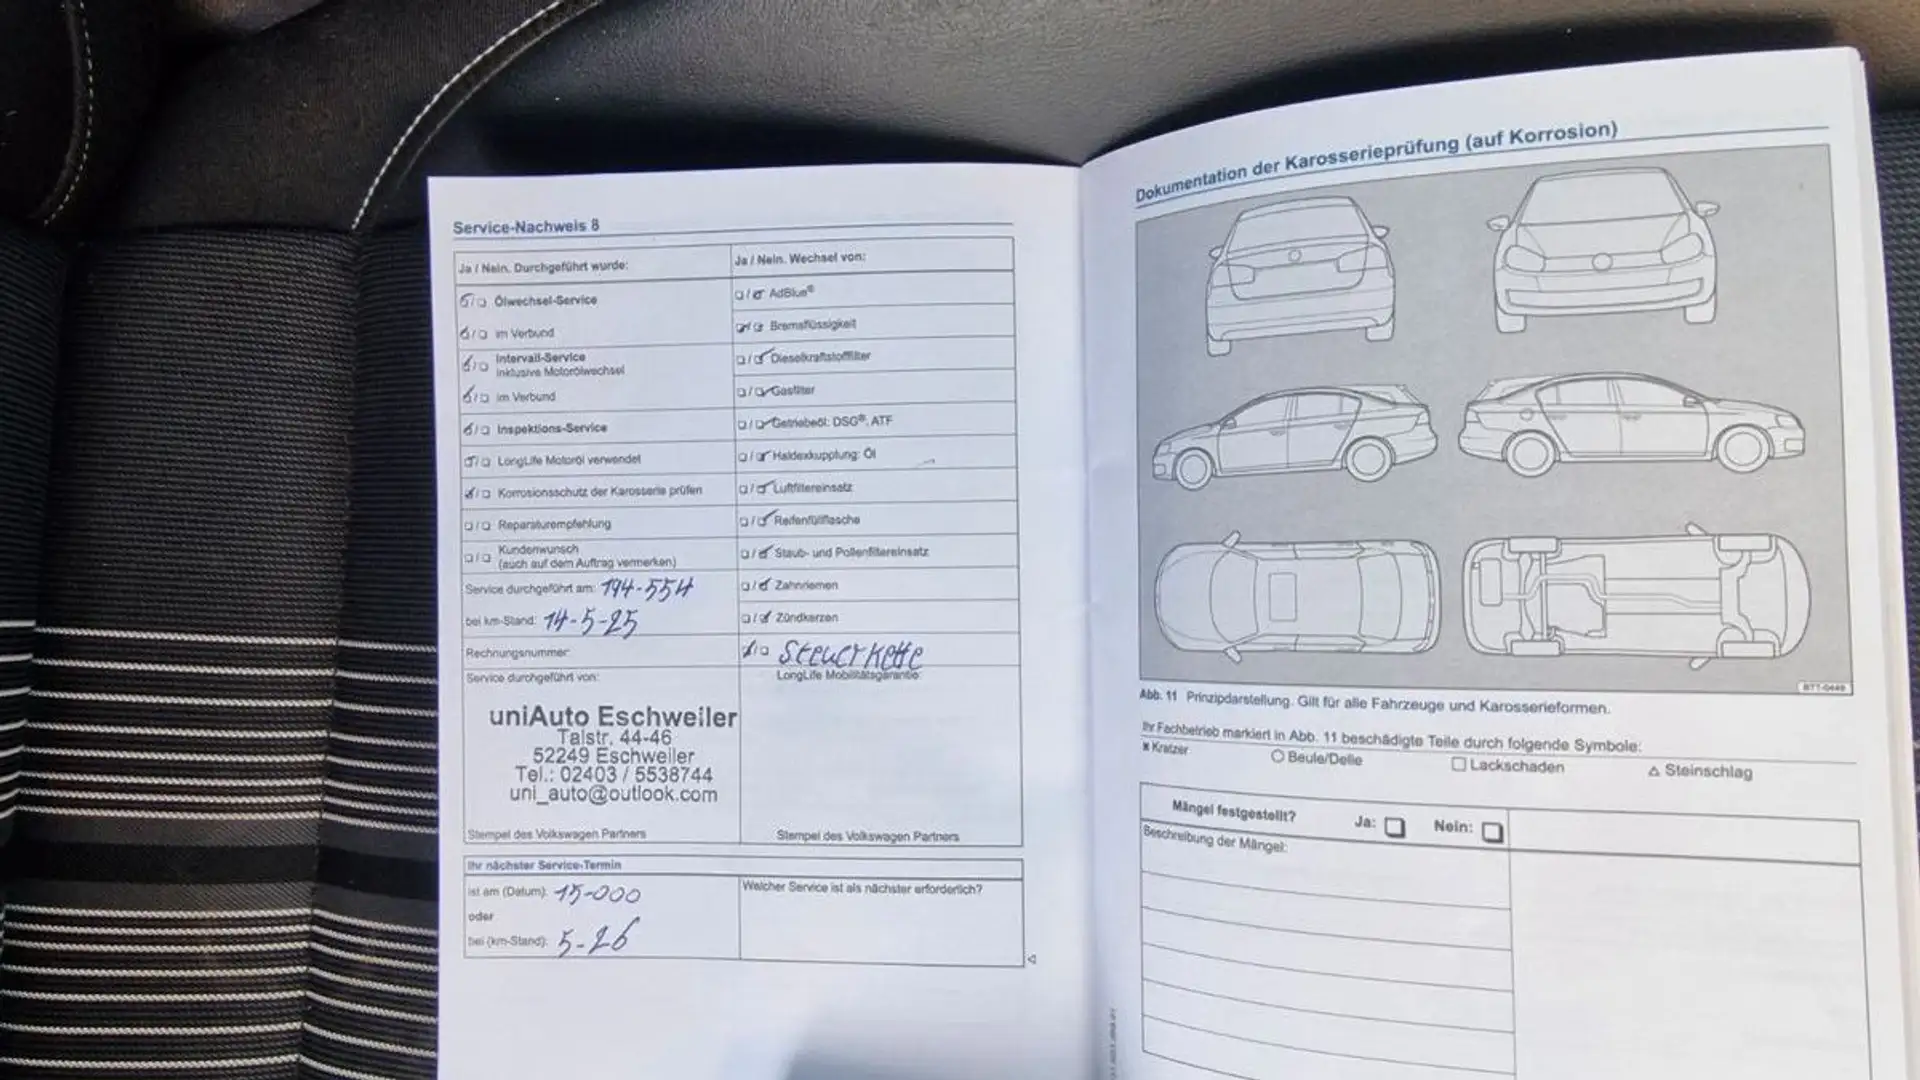 Service-Nachweis 8
Ja / Nein. Durchgeführt wurde:
Ölwechsel-Service
im Verbund
Intervall-Service
inklusive Motorölwechsel
im Verbund
Inspektions-Service
LongLife Motoröl verwendet
Korrosionsschutz der Karosserie prüfen
Reparaturempfehlung
Kundenwunsch
(auch auf dem Auftrag vermerken)
Service durchgeführt am: 194-554
bei km-Stand: 14-5-25
Rechnungsnummer:
Service durchgeführt von:
uniAuto Eschweiler
Talstr. 44-46
52249 Eschweiler
Tel.: 02403 / 5538744
uni_auto@outlook.com
Stempel des Volkswagen Partners
Ja / Nein. Wechsel von:
AdBlue®
Bremsflüssigkeit
Dieselkraftstofffilter
Gasfilter
Getriebeöl: DSG®, ATF
Haldexkupplung: Öl
Luftfiltereinsatz
Reifenfüllflasche
Staub- und Pollenfiltereinsatz
Zahnriemen
Zündkerzen
Steuerkette
LongLife Mobilitätsgarantie:
Stempel des Volkswagen Partners
Ihr nächster Service-Termin
ist am (Datum): 15-000
oder
bei (km-Stand): 5-26
Welcher Service ist als nächster erforderlich?
Dokumentation der Karosserieprüfung (auf Korrosion)
Abb. 11 Prinzipdarstellung. Gilt für alle Fahrzeuge und Karosserieformen.
Ihr Fachbetrieb markiert in Abb. 11 beschädigte Teile durch folgende Symbole:
Kratzer Beule/Delle Lackschaden Steinschlag
Mängel festgestellt? Ja: Nein:
Beschreibung der Mängel: